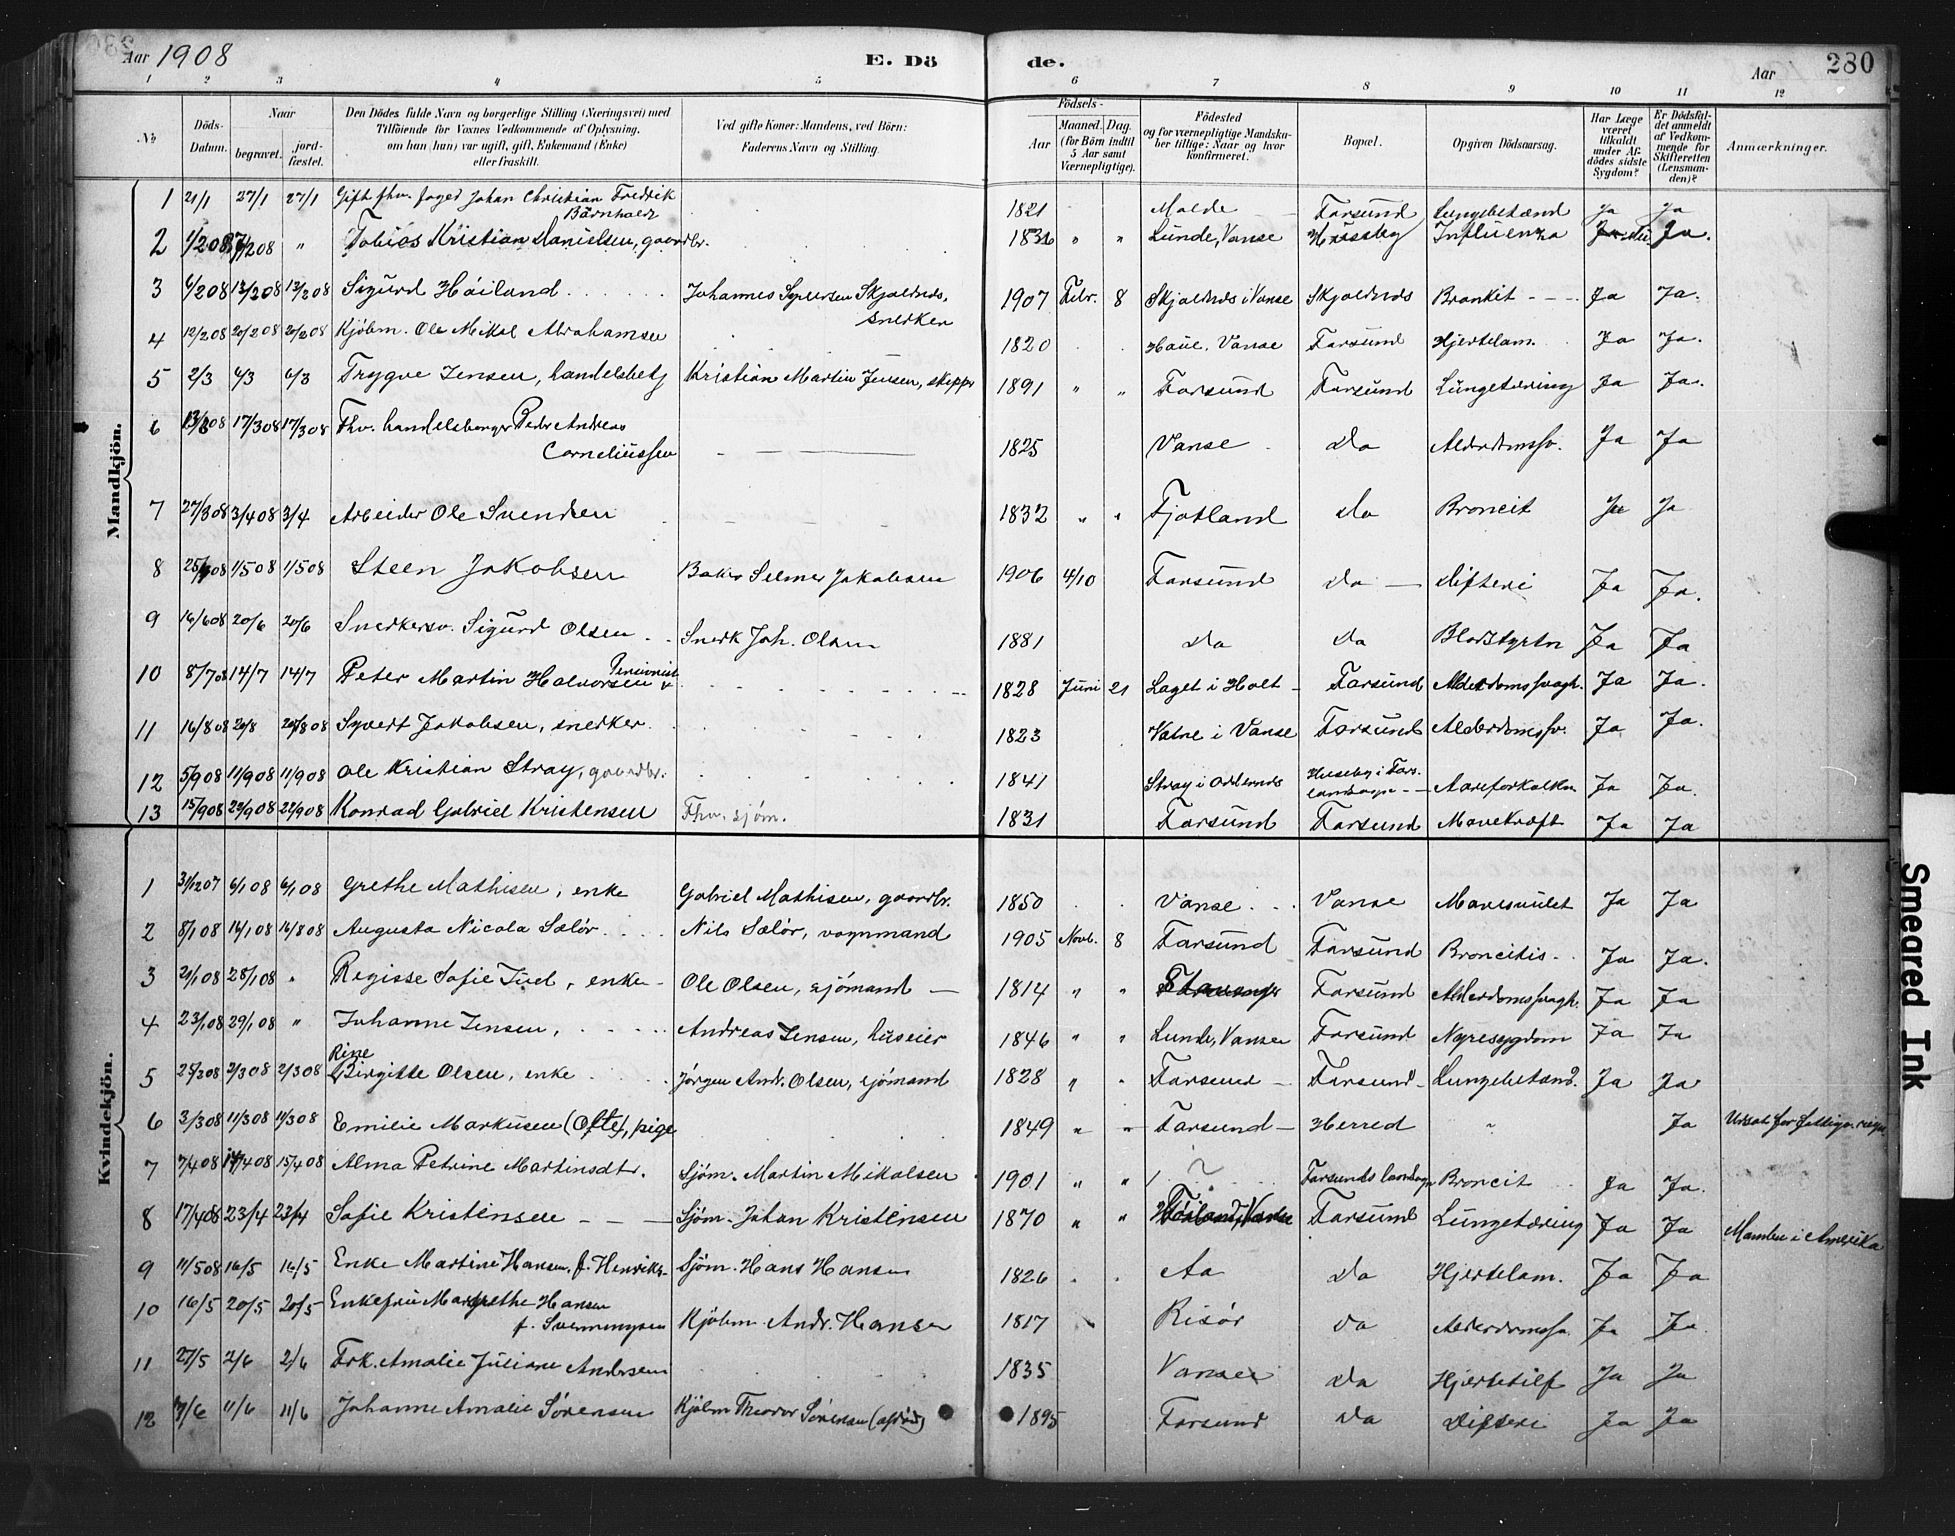 Aar 1908 E. Dö de. Aar 280
1 2 3 4 5 6 7 8 9 10 11 12
No Döds-Datum. Naar begravet. jordfæstet. Den Dödes fulde Navn og borgerlige Stilling (Næringsvei) med Tilföiende for Voxnes Vedkommende af Oplysning, om han (hun) var ugift, gift, Enkemand (Enke) eller fraskilt. Ved gifte Koner: Mandens, ved Börn: Faderens Navn og Stilling. Födsels- Aar Maaned. Dag. (for Börn indtil 5 Aar samt Værnepligtige). Födested og for værnepligtige Mandskaber tillige: Naar og hvor konfirmeret. Bopæl. Opgiven Dödsaarsag. Har Læge været tilkaldt under Afdödes sidste Sygdom? Er Dödsfaldet anmeldt af Vedkommende for Skifteretten (Lensmanden)? Anmærkninger.
Mandkjön.
1 21/1 27/1 27/1 Gift fhv. foged Johan Christian Fredrik Bärnholdt 1821 Molde Farsund Lungebetænd Ja Ja
2 1/2 08 /2 08 " Tobias Kristian Danielsen, gaardbr. " " Lunde, Vanse Influenza Ja.
3 6/2 08 13/2 08 13/2 08 Sigurd Höiland Johannes Skjoldnes, snedker 1907 Febr. 8 Skjoldnes i Vanse Skjoldnes Bronkit Ja Ja.
4 12/2 08 20/2 08 20/2 08 Kjöbm. Ole Mikal Abrahamsen 1820 Haue, Vanse Farsund Hjertelam. Ja Ja.
5 2/3 6/3 6/3 Trygve Jensen, handelsbetj Kristian Martin Jensen, skippr 1891 " " Farsund Farsund Lungetæring Ja Ja.
6 13/3 08 17/3 08 17/3 08 Fhv. handelsborger Peder Andreas Corneliussen 1825 Vanse do Alderdomssv. Ja Ja
7 27/3 08 3/4 08 3/4 Arbeider Ole Svendsen 1832 " " Fjotland do Broncit Ja Ja
8 25/4 08 1/5 08 1/5 08 Steen Jakobsen Baker Selmer Jakobsen 1906 4/10 Farsund do Difteri Ja Ja.
9 16/6 08 20/6 20/6 Snedkersv. Sigurd Olsen Snedk Joh. Olsen 1881 do do Blodstyrtn Ja Ja
10 8/7 08 14/7 14/7 Peter Martin Halvorsen Pensionist 1828 Juni 21 Laget i Holt Farsund Alderdomssvagh. Ja Ja.
11 16/8 08 20/8 20/8 08 Syvert Jakobsen, snedker 1823 Vatne i Vanse Farsund Alderdomssv. Ja Ja.
12 5/9 08 11/9 08 11/9 08 Ole Kristian Stray, gaardbr. 1841 Stray i Oddernes Huseby i Fars. landsogn Aareforkalkn Ja Ja.
13 15/9 08 22/9 08 22/9 08 Konrad Gabriel Kristensen Fhv. sjöm. 1831 Farsund Farsund Mavekræft Ja Ja
Kvindekjön.
1 31/12 07 6/1 08 6/1 08 Grethe Mathisen, enke Gabriel Mathisen, gaardbr. 1850 Vanse Vanse Ja Ja
2 8/1 08 16/1 08 16/8 08 Augusta Nicola Sælör Nils Sælör, vognmand 1905 Novb. 8 Farsund Farsund Broncitis Ja Ja.
3 21/1 08 28/1 08 " Regisse Sofie Juel, enke Ole Olsen, sjömand 1814 " " Stavanger Farsund Alderdomssvagh. Ja Ja
4 23/1 08 29/1 08 " Johanne Jensen, Andreas Jensen, huseier 1846 " " Lunde, Vanse Farsund Nyresygdom Ja Ja
5 25/2 08 2/3 08 2/3 08 Rine Birgitte Olsen, enke Jörgen Andr. Olsen, sjömand 1828 " " Farsund Farsund Lungebetænd. Ja Ja
6 3/3 08 11/3 08 11/3 08 Emilie Markusen (Ofte), pige 1849 " " Farsund Herred " Ja Utsat for fattigv. regn
7 7/4 08 15/4 08 15/4 08 Alma Petrine Martinsdtr. Sjöm. Martin Mikalsen 1901 " " ? Farsunds landsogn Broncit Ja Ja.
8 17/4 08 23/4 23/4 Sofie Kristensen Sjöm. Johan Kristensen 1870 " " Farsund Lungetæring Ja Ja Manden i Amerika
9 11/5 08 16/5 16/5 Enke Martine Hansen, f. Henriks- Sjöm. Hans Hansen 1826 Aa do Hjertelam. Ja Ja
10 16/5 20/5 20/5 Enkefru Margrethe Hansen f. Svenningsen Kjöbm. Andr. Hansen 1817 Risör do Alderdomssv. Ja Ja.
11 27/5 2/6 2/6 Frk. Amalie Juliane Andersen 1835 Vanse do Hjertetilf Ja Ja
12 7/6 11/6 11/6 Johanne Amalie Sörensen Kjöbm Theodor Sörensen (afdöd) 1895 Farsund do Difteri Ja Ja
Smeared Ink